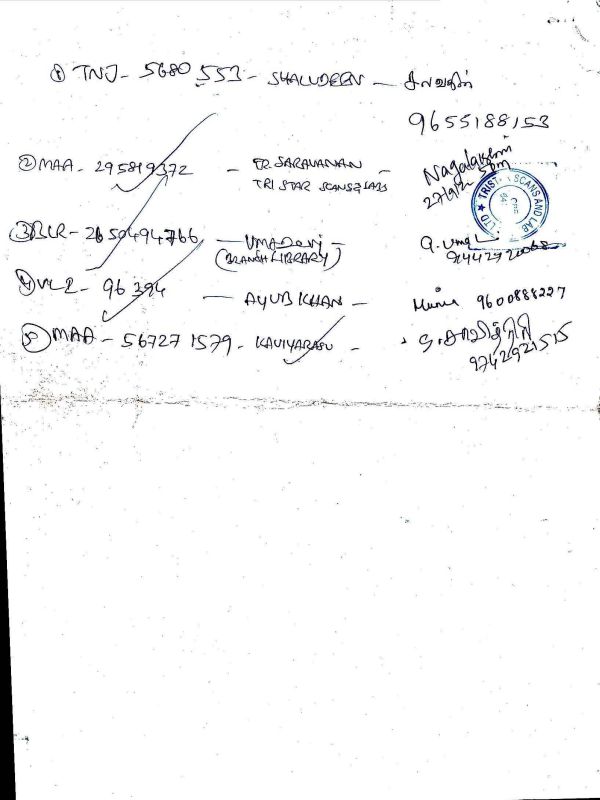 ① TNJ - 5680 553 - SHALUDEEN -
9655188153
② MAA - 295819372 - DR. SARAVANAN -
TRI STAR SCANS & LABS
Nagalakshmi
TRISTAR SCANS AND LAB LTD
③ BLR - 2650494766 - UMADevi -
(BRANCH LIBRARY)
Q. Uma
④ VLR - 96394 - AYUB KHAN - 9600888227
⑤ MAA - 567271579 - KAVIYARASU -
9742921515